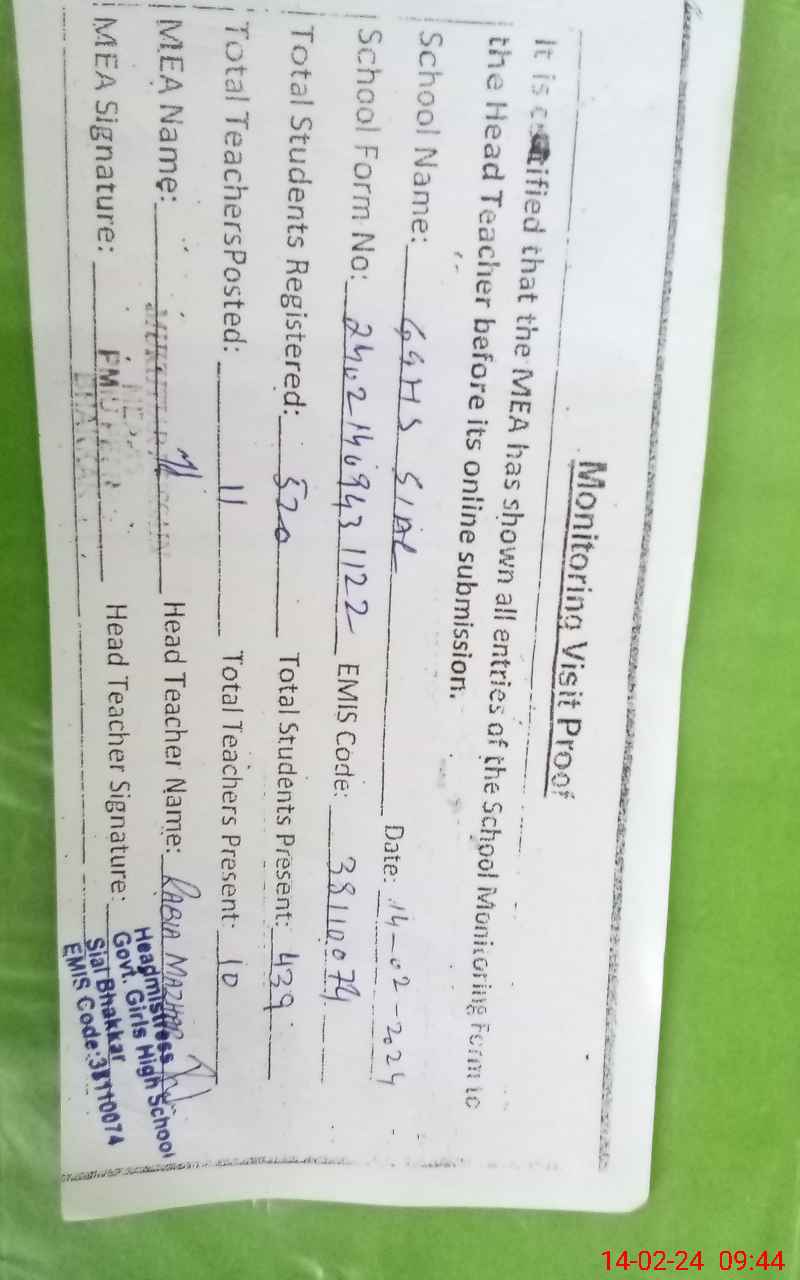 Monitoring Visit Proof
It is certified that the MEA has shown all entries of the School Monitoring Form to
the Head Teacher before its online submission.
School Name: GGHS SIAL Date: 14-02-2024
School Form No: 2402140943 1122 EMIS Code: 38110074
Total Students Registered: 520 Total Students Present: 439
Total TeachersPosted: 11 Total Teachers Present: 10
MEA Name: Head Teacher Name: RABIA MAZHAR
MEA Signature: Head Teacher Signature:
Headmistress
Govt. Girls High School
Sial Bhakkar
EMIS Code:38110074
14-02-24 09:44